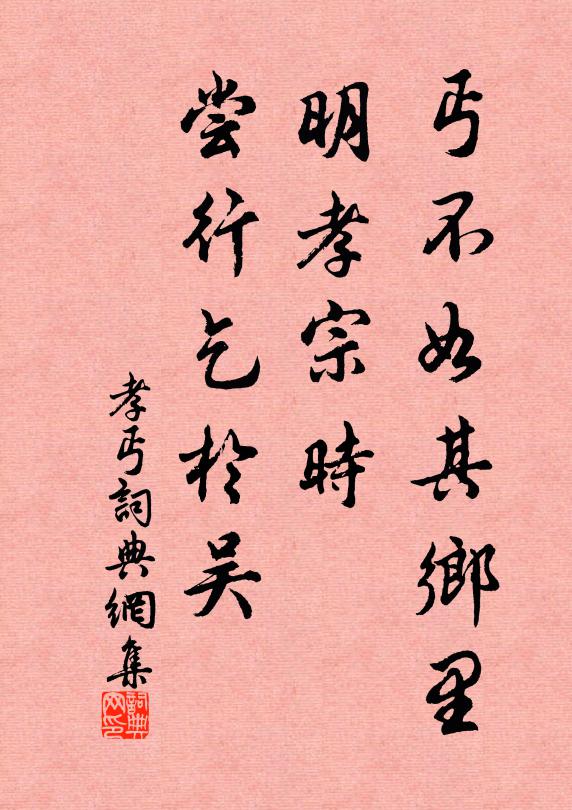 丐不如其鄉里
明孝宗時
尝行乞於吴
孝丐詞典網集
詞典网印